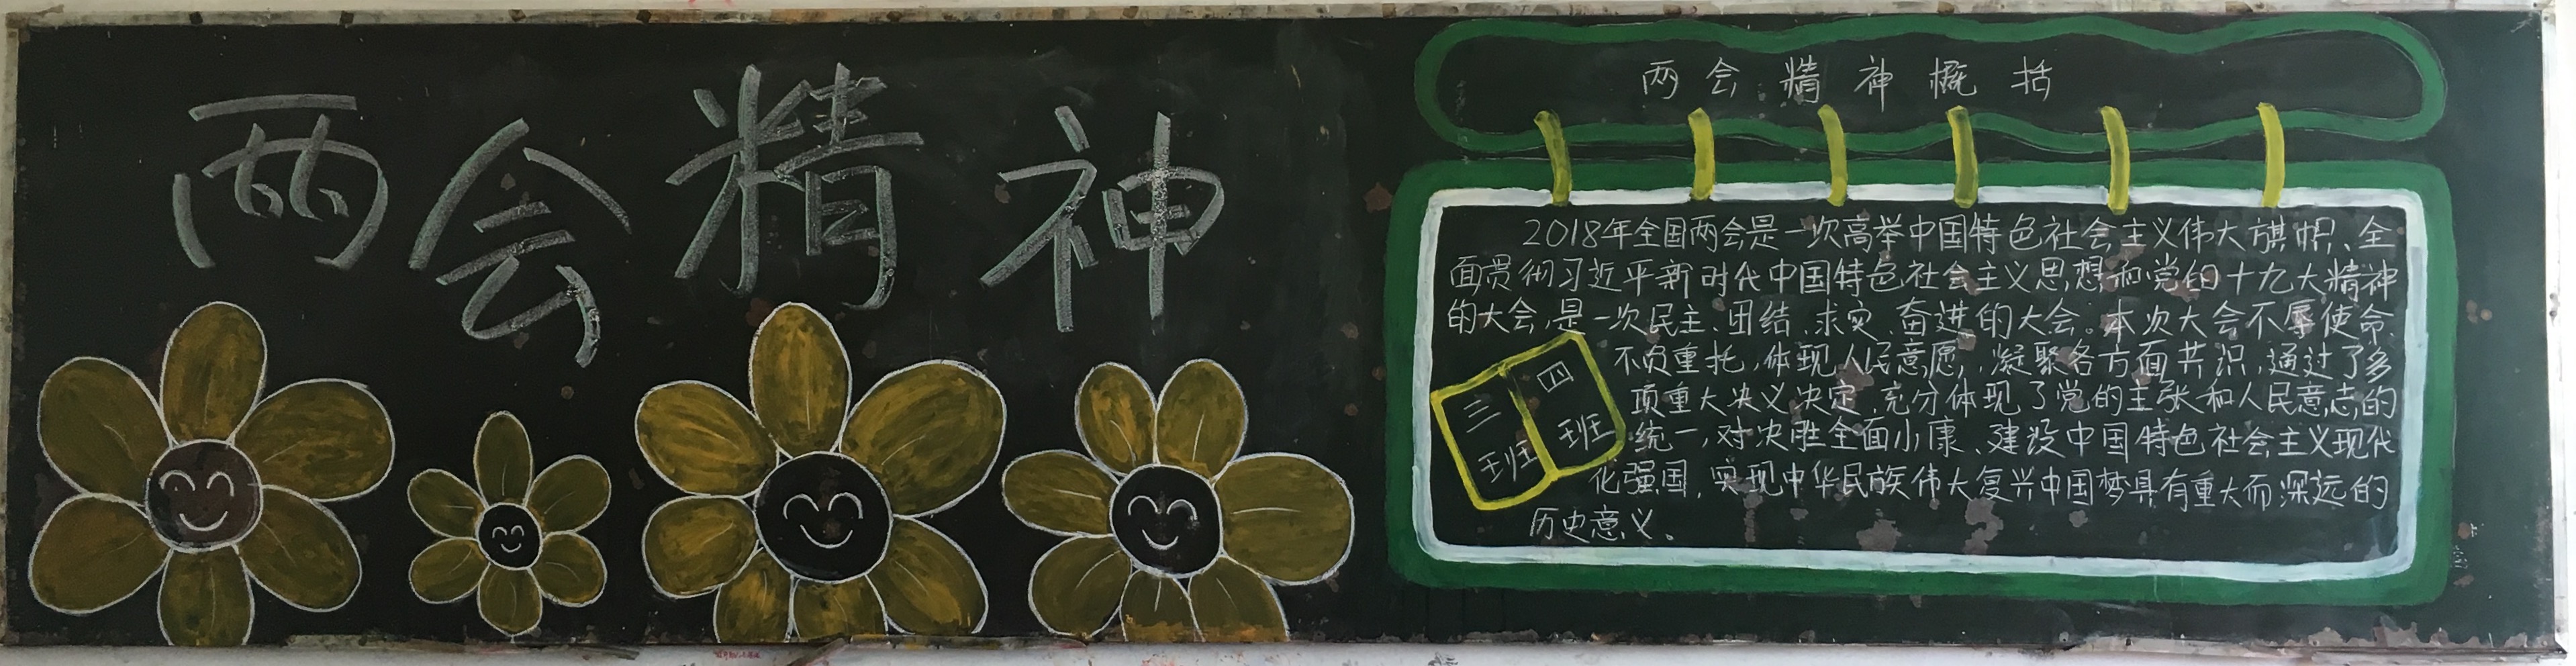 两会精神
两会精神概括
2018年全国两会是一次高举中国特色社会主义伟大旗帜、全
面贯彻习近平新时代中国特色社会主义思想和党的十九大精神
的大会,是一次民主、团结、求实、奋进的大会。本次大会不辱使命、
不负重托,体现人民意愿,凝聚各方面共识,通过了多
项重大决义决定,充分体现了党的主张和人民意志的
统一,对决胜全面小康、建设中国特色社会主义现代
化强国,实现中华民族伟大复兴中国梦具有重大而深远的
历史意义。
三班
四班